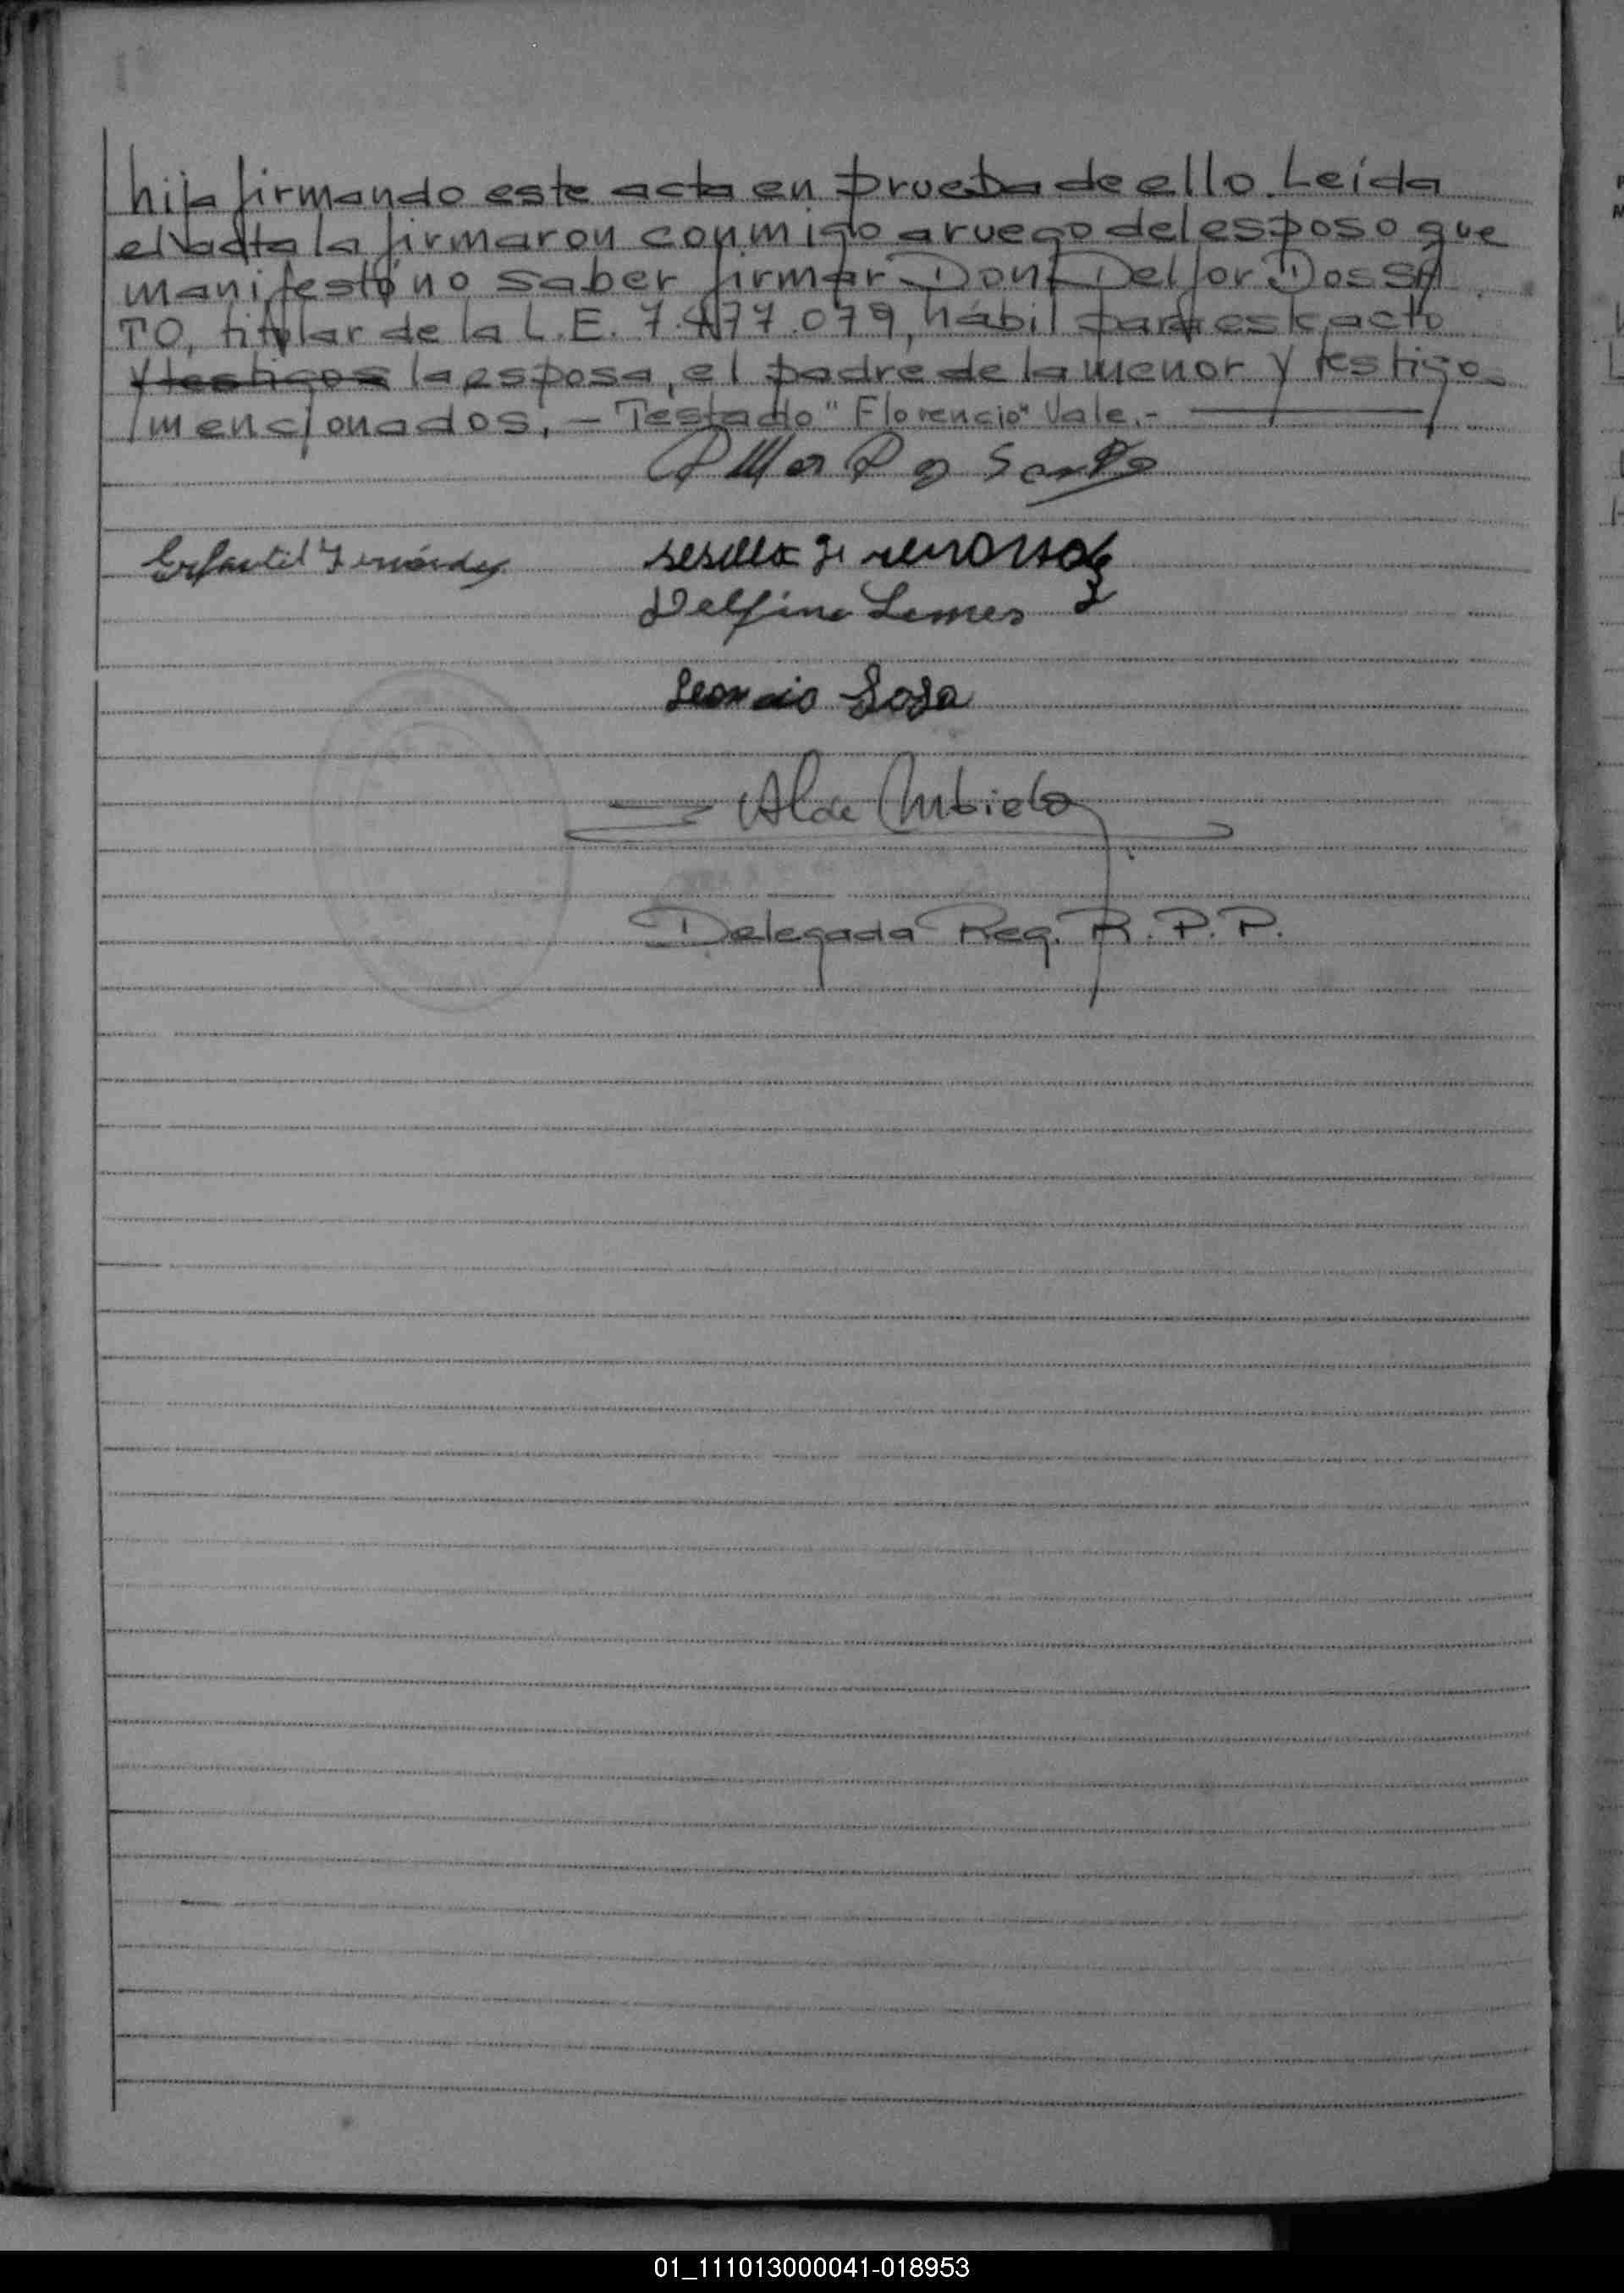 hija firmando este acta en prueba de ello. Leída
el acta la firmaron conmigo a ruego del esposo que
manifestó no saber firmar Don Delfor Dos SA
TO, titular de la L.E. 7.477.079, hábil para este acto
y testigos la esposa, el padre de la menor y testigos
mencionados. - Testado "Florencio" Vale. -
Fernández
Delfino Lemes
Leoncio Sosa
Alda
Delegada Reg. R. P. P.
01_111013000041-018953